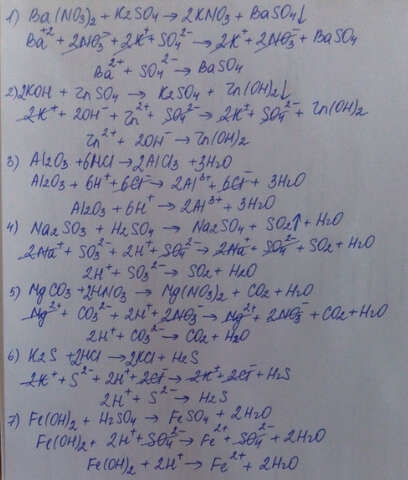 1) Ba(NO3)2 + K2SO4 → 2KNO3 + BaSO4↓
Ba+2 + 2NO3- + 2K+ + SO4 2- → 2K+ + 2NO3- + BaSO4
Ba2+ + SO4 2- → BaSO4
2) 2KOH + ZnSO4 → K2SO4 + Zn(OH)2↓
2K+ + 2OH- + Zn2+ + SO4 2- → 2K+ + SO4 2- + Zn(OH)2
Zn2+ + 2OH- → Zn(OH)2
3) Al2O3 + 6HCl → 2AlCl3 + 3H2O
Al2O3 + 6H+ + 6Cl- → 2Al3+ + 6Cl- + 3H2O
Al2O3 + 6H+ → 2Al3+ + 3H2O
4) Na2SO3 + H2SO4 → Na2SO4 + SO2↑ + H2O
2Na+ + SO3 2- + 2H+ + SO4 2- → 2Na+ + SO4 2- + SO2 + H2O
2H+ + SO3 2- → SO2 + H2O
5) MgCO3 + 2HNO3 → Mg(NO3)2 + CO2 + H2O
Mg2+ + CO3 2- + 2H+ + 2NO3- → Mg2+ + 2NO3- + CO2 + H2O
2H+ + CO3 2- → CO2 + H2O
6) K2S + 2HCl → 2KCl + H2S
2K+ + S2- + 2H+ + 2Cl- → 2K+ + 2Cl- + H2S
2H+ + S2- → H2S
7) Fe(OH)2 + H2SO4 → FeSO4 + 2H2O
Fe(OH)2 + 2H+ + SO4 2- → Fe2+ + SO4 2- + 2H2O
Fe(OH)2 + 2H+ → Fe2+ + 2H2O